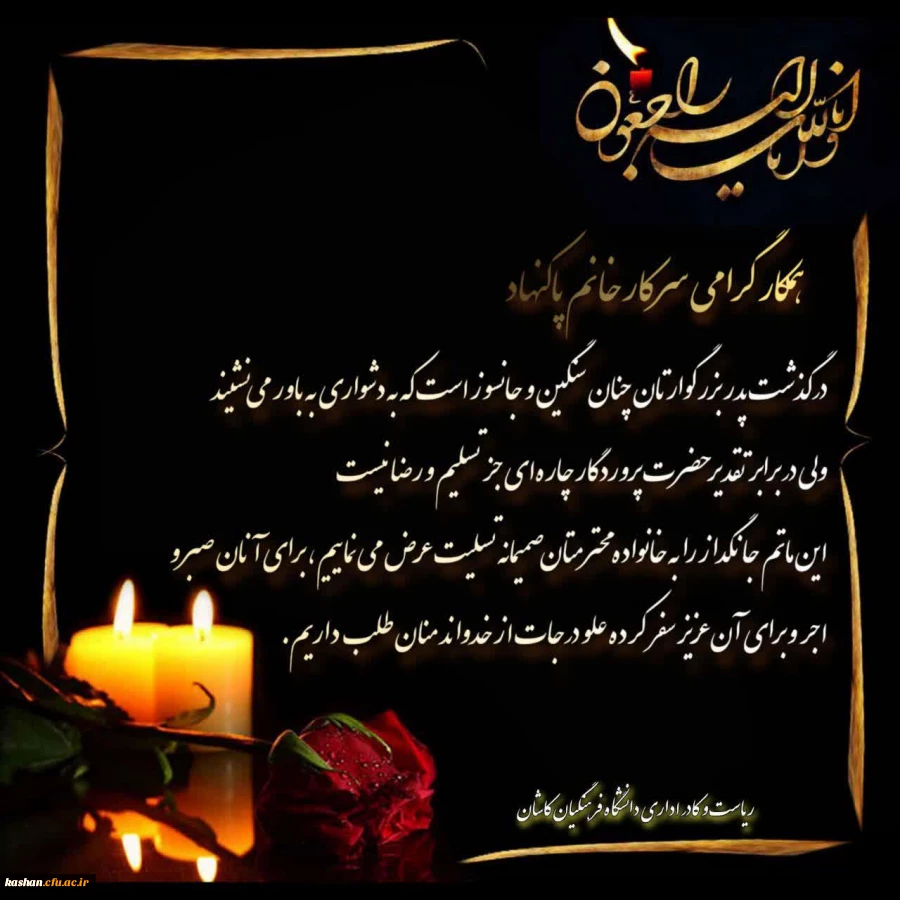 انا لله و انا الیه راجعون
همکار گرامی سرکار خانم پاکنهاد
درگذشت پدر بزرگوارتان چنان سنگین و جانسوز است که به دشواری به باور می نشیند
ولی در برابر تقدیر حضرت پروردگار چاره ای جز تسلیم و رضا نیست
این ماتم جانگداز را به خانواده محترمتان صمیمانه تسلیت عرض می نماییم ، برای آنان صبر و
اجر و برای آن عزیز سفر کرده علو درجات از خداوند منان طلب داریم .
ریاست و کادر اداری دانشگاه فرهنگیان کاشان
kashan.cfu.ac.ir